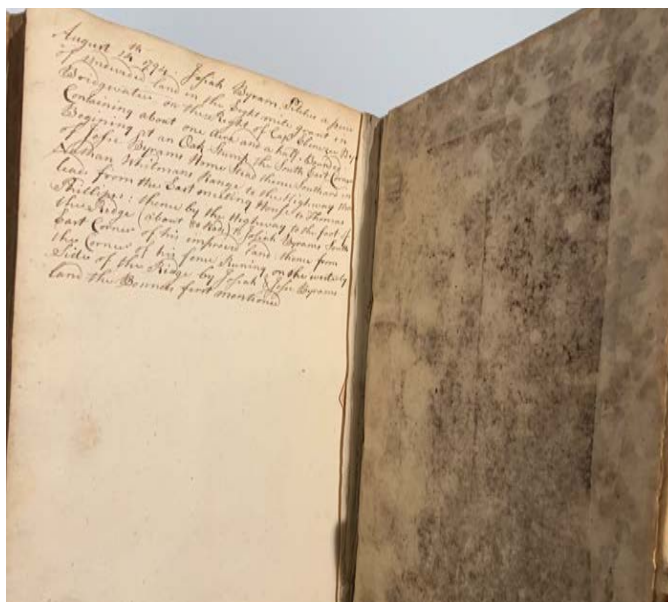 August 14th 1794. Josiah Byram Pitches a piece
of Undivided land in the Eight mile Grant in
Bridgwater on the Right of Capt Ebenezer By
Containing about one Acre and a half. Bounded
Begining at an Oak Stump the South East Corner
of Josiah Byrams Home Stead thence Southard in
Nathan Whitmans Range to the Highway that
lead from the East meeting House to Thomas
Phillips: thence by the Highway to the foot of
the Ridge (about 8 Rods) to Josiah Byrams South
East Corner of his improved land thence from
the Corner of his fence Runing on the westerly
Side of the Ridge by Josiah & Byrams
land the Bounds first mentioned